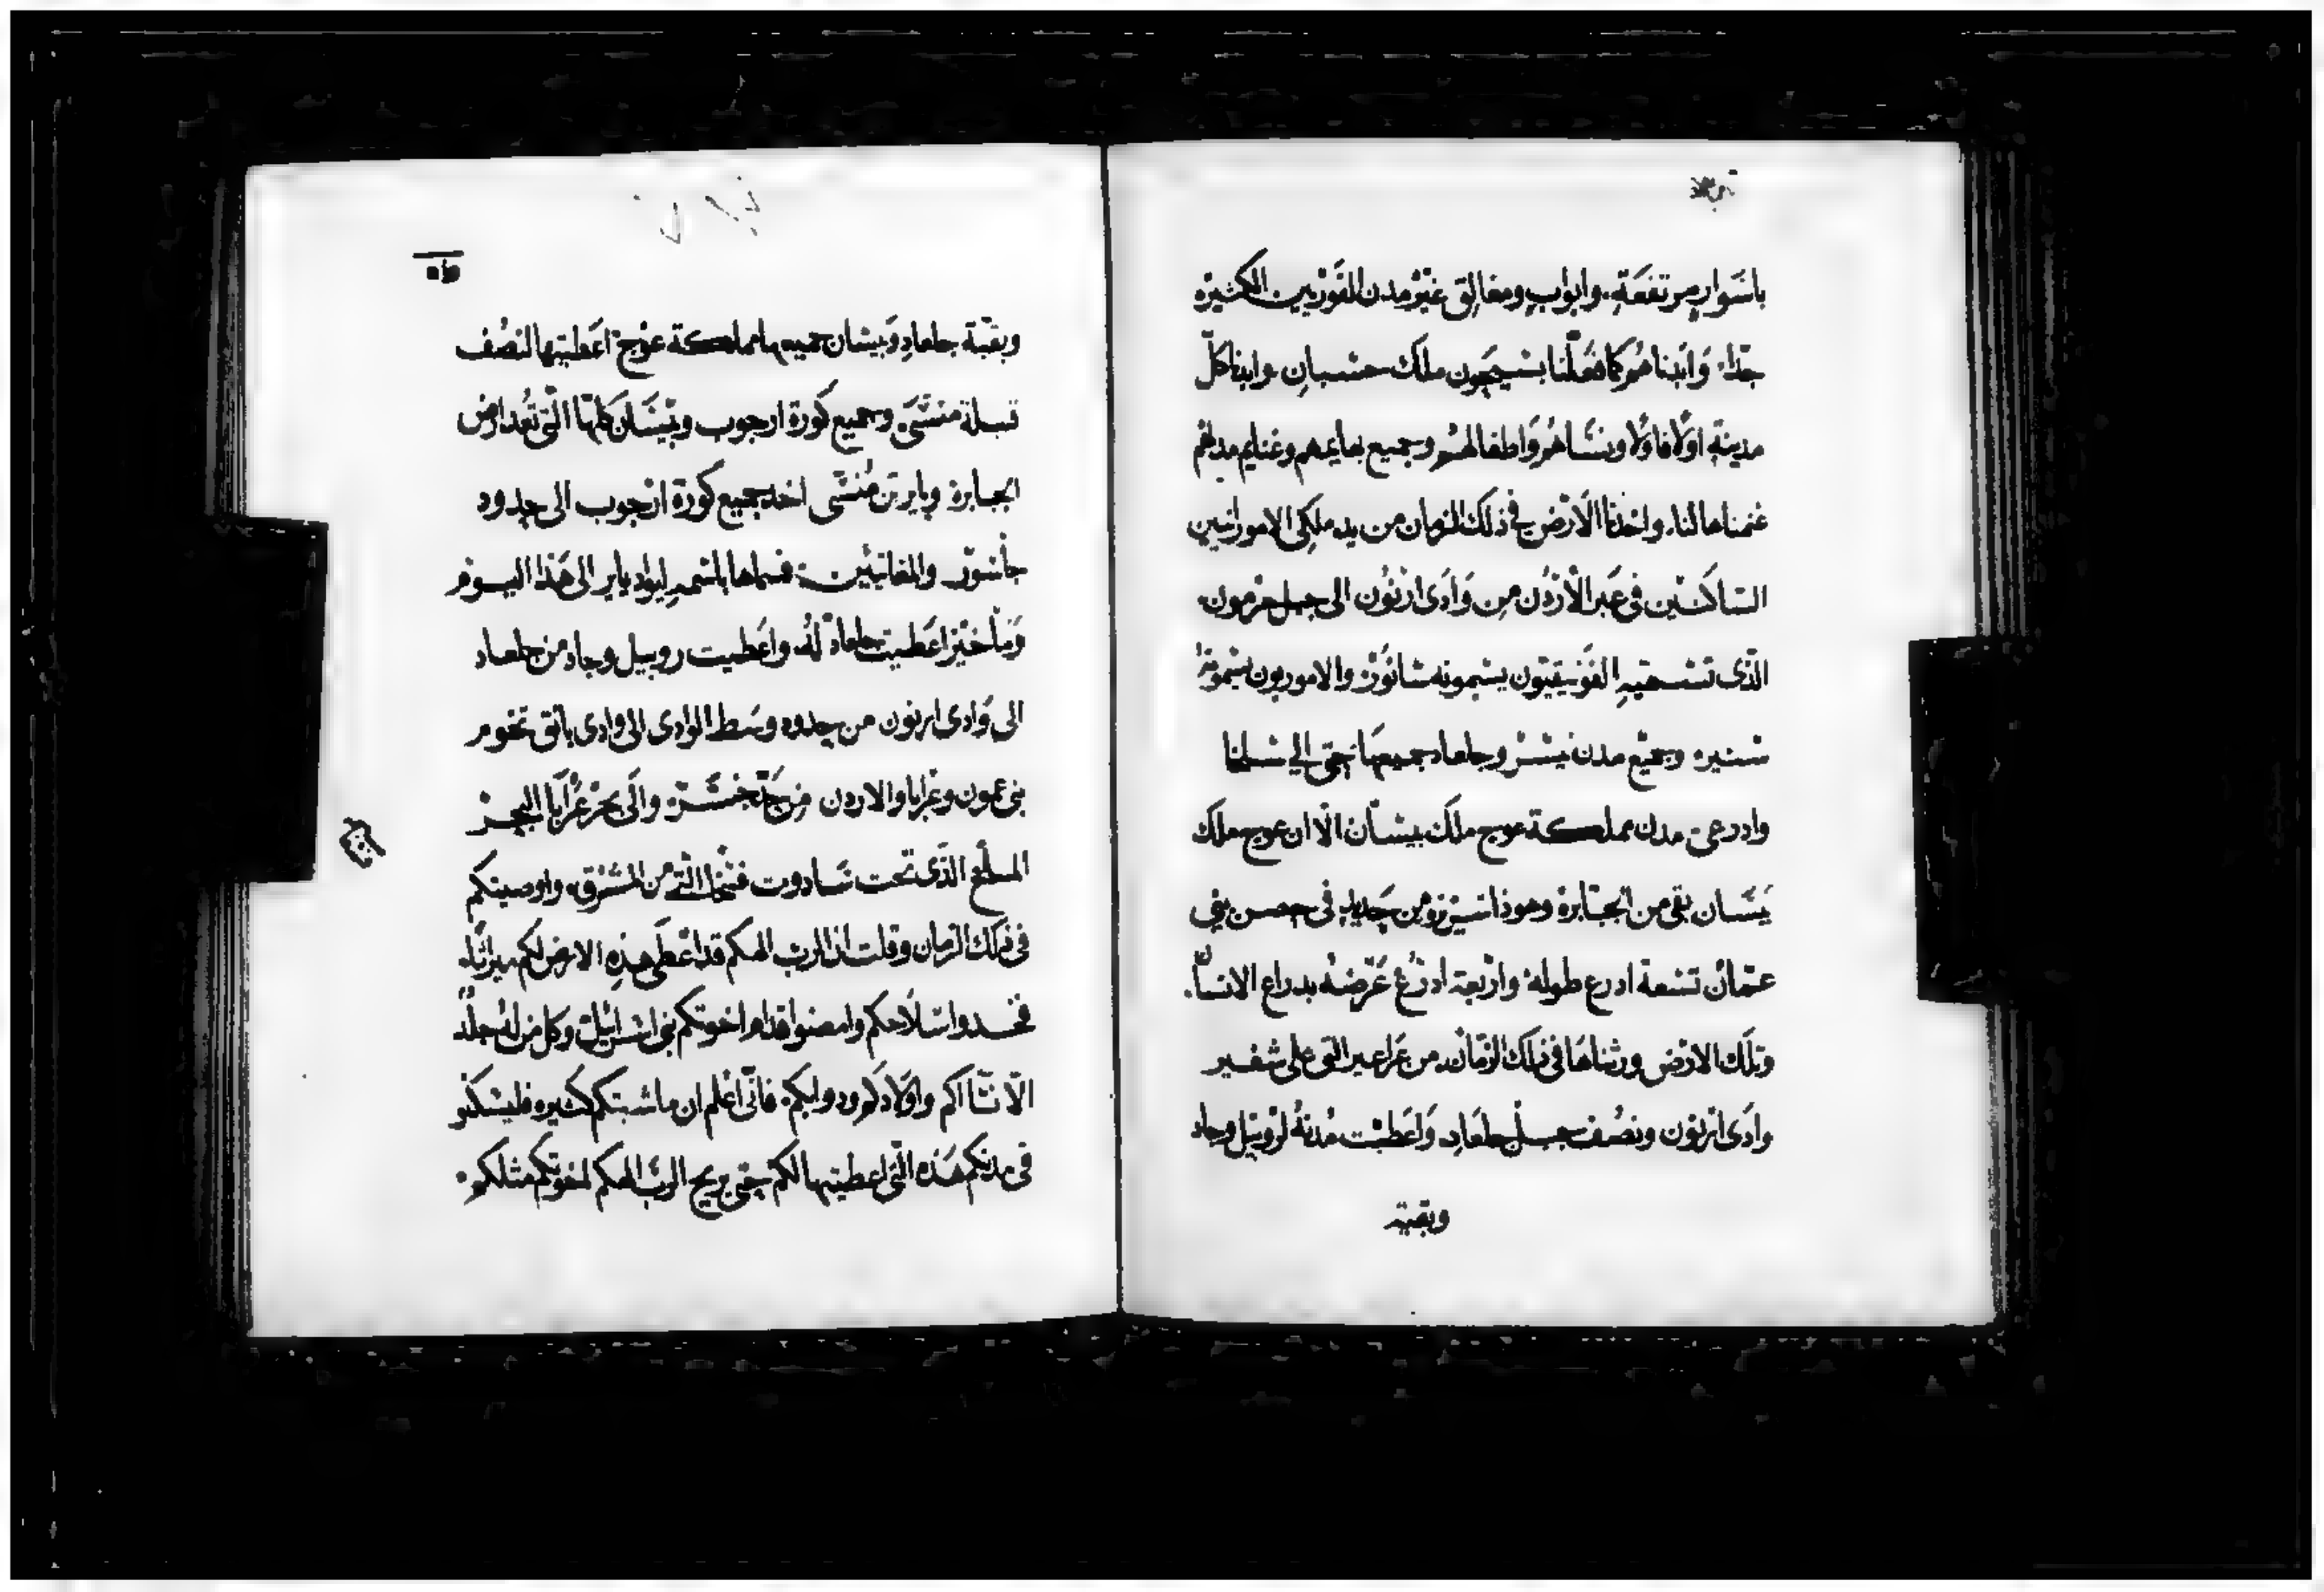 باسوار مرتفعة. وابواب ومغاليق غير مدن الفوزيين الكثيره
جدا. وابدناهم كما فعلنا بسيحون ملك حسبان وابدنا كل
مدينة اولا فاولا ونساهم واطفالهم وجميع بهايمهم وغنايم مدنهم
غنمناها لنا. واخذنا الارض في ذلك الزمان من يد ملكى الامورانيين
الساكنين في عبر الاردن من وادى ارنون الى جبل حرمون.
الذى تسميه الفونيقيون يسمونه شانور والاموريون يسمونه
سنير. وجميع مدن ميسر وجلعاد جميعها حتى الي سلخا
وادرعى مدن مملكة عوج ملك بيسان الا ان عوج ملك
بيسان بقى من الجبابرة وهوذا سريره من حديد في حصن بني
عمان تسعة ادرع طوله واربعة ادرع عرضه بدراع الانسان.
وتلك الارض ورثناها في ذلك الزمان. من عراعير التى على شفير
وادى ارنون ونصف جبل جلعاد. واعطيت مدنه لروبيل وجاد
وبقية
وبقية جلعاد وبيسان جميعها مملكة عوج اعطيتها لنصف
قبيلة منسى. وجميع كورة ارجوب وبيسان كلها التى تعد ارض
الجبابرة وياير بن منسى اخد جميع كورة ارجوب الى حدود
جاسور والمغانيين فسماها باسمه ليواد ياير الى هذا اليوم
وماخير اعطيت جلعاد له. واعطيت روبيل وجاد من جلعاد
الى وادى ارنون من حدود وسط الوادى الى وادى باتق تخوم
بنى عمون وعرابا والاردن من حد خنسرة والى بحر عرابا البحر
المالح الذى تحت سادوت فسخا التى من المشرق. واوصيتكم
فى ذلك الزمان وقلت ان الرب الهكم قد اعطى هذه الارض لكم ميراثا.
فخدوا سلاحكم وامضوا قدام اخوتكم بنى اسرائيل وكل من له جلد
الا نسااكم واولادكم ودوابكم. فانى اعلم ان ماشيتكم كثيره فليسكنو
فى مدنكم هذه التى اعطيتها لكم حتى يريح الرب الهكم اخوتكم مثلكم.